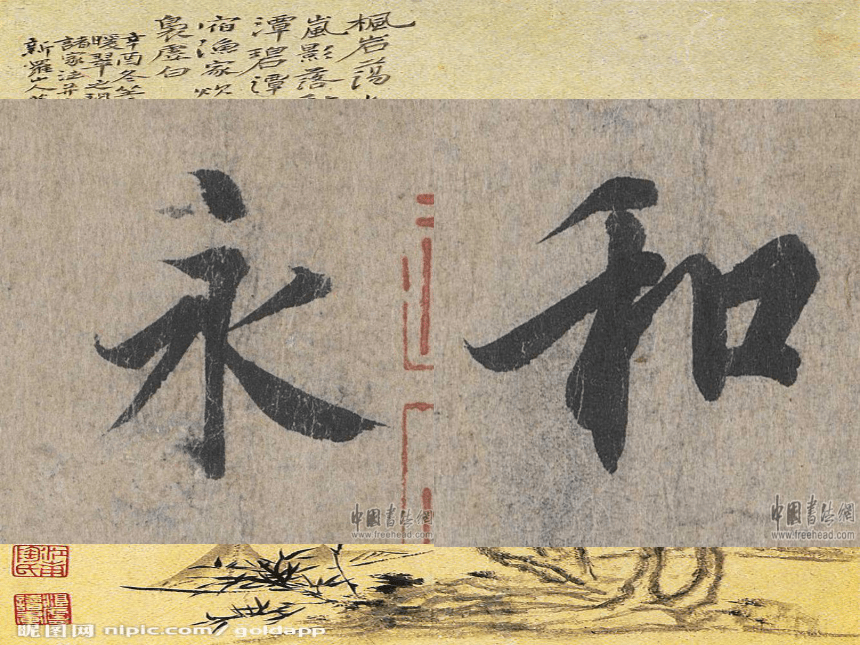 楓岩蕩
嵐影落
潭碧潭
宿漁家炊
裊虛白
辛酉冬
暖翠之
諸家法
新羅山人
永和
中國書法網
www.freehead.com
中國書法網
www.freehead.com
昵图网 nipic.com/ goldapp